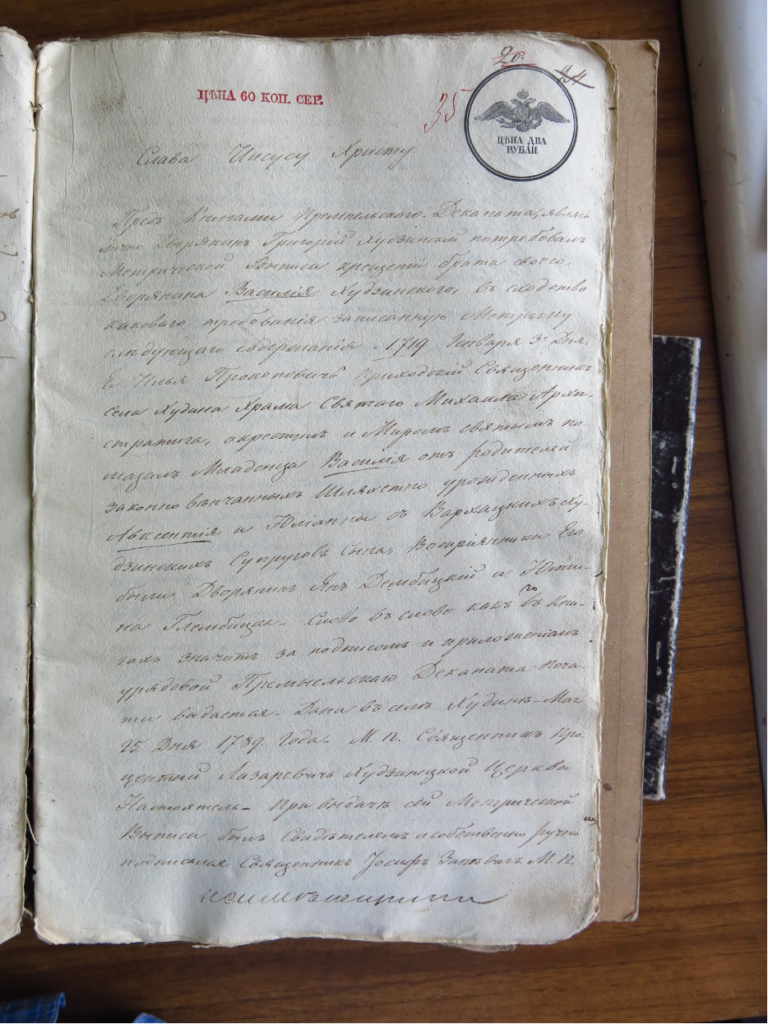 20.
ЦѢНА 60 КОП. СЕР.
35
ЦѢНА ДВА
РУБЛИ
Слава Иисусу Христу.
Предъ Книгами Премысльскаго Деканата, явясь
лично Дворянинъ Григорій Худзинскій потребовалъ
Метрической Выписи крещенія брата своего,
Дворянина Василія Худзинскаго, въ сходство
каковаго требованія записанную Метрику
слѣдующаго содержанія. 1719 Января 3 Дня.
Я Илья Прокоповичъ Приходскій Священникъ
села Худина Храма Святаго Михаила Архи-
стратига, окрестилъ и Миромъ святымъ по-
мазалъ Младенца Василія отъ родителей
законно вѣнчанныхъ Шляхетно урожденныхъ
Авксентія и Юліанны съ Вархацкихъ Ху-
дзинскихъ Супруговъ Сына, Воспріемники Его
были Дворянинъ Янъ Дембицкій и Юсти-
на Глембицка. Слово въ слово какъ то въ Кни-
гахъ значитъ за подписомъ и приложеніемъ
урядовой Премысльскаго Деканата печа-
ти выдается. Дана въ селѣ Худинѣ Мая
25 Дня 1789 Года. М. П. Священникъ
Лазаревичъ Худзинецкой Церкви
Настоятель При выдачѣ сей Метрической
Выписи былъ Свидѣтелемъ и собственноручно
подписался Священникъ Іосифъ М. П.